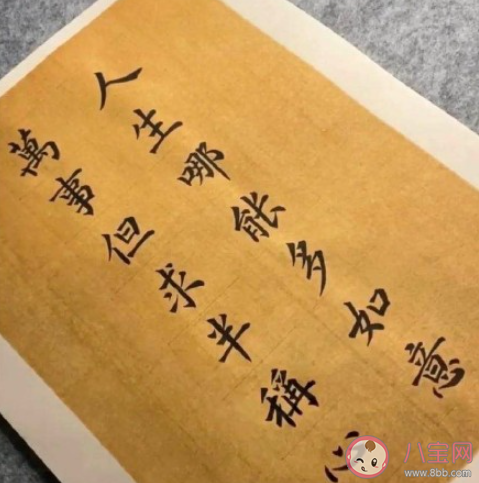 人生哪能多如意
萬事但求半稱心
八宝网
www.8bb.com